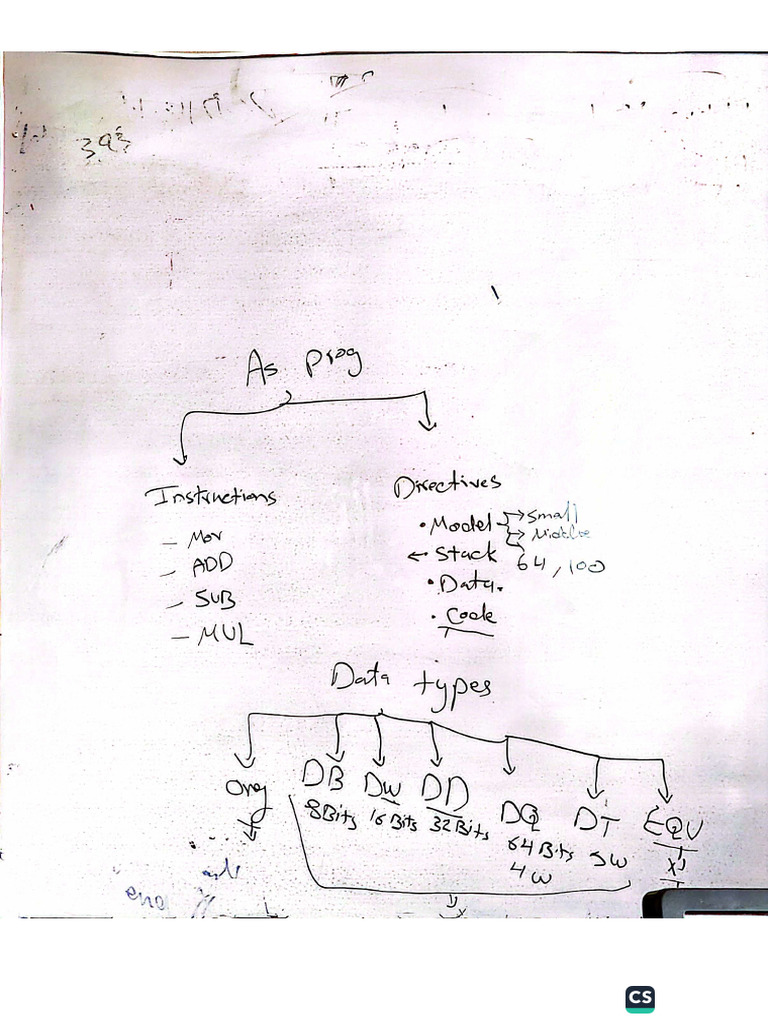 As prog
Instructions
Directives
- Mov
- ADD
- SUB
- MUL
• Model → Small
→ Middle
← Stack 64, 100
• Data.
• Code
Data types
Org
DB
8Bits
DW
16 Bits
DD
32 Bits
DQ
64 Bits
4 W
DT
5 W
EQU
CS